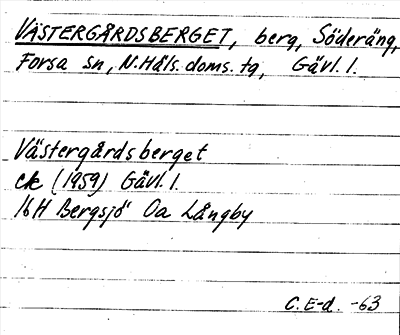 VÄSTERGÅRDSBERGET, berg, Söderäng,
Forsa sn, N.Häls.doms.tg, Gävl.l.
Västergårdsberget
ek (1959) Gävl.l.
16H Bergsjö 0a Långby
C.E-d. -63